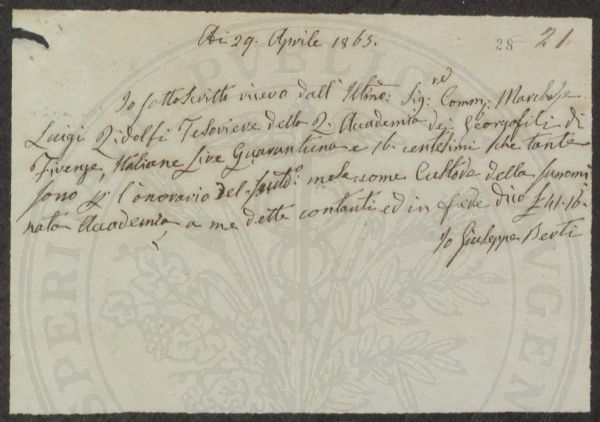 Di 29. Aprile 1865.
28 21
Io sottoscritto riceva dall' Illmo: Sig:re Comm: Marchese
Luigi Ridolfi Tesoriere della R. Accademia dei Georgofili di
Firenze, Italiane Lire Quarantuna e 16 centesimi che tante
sono p l'onorario del mese come Custode della sunomi
nata Accademia a me dette contanti ed in fede dico £ 41.16.
Io Giuseppe Berti